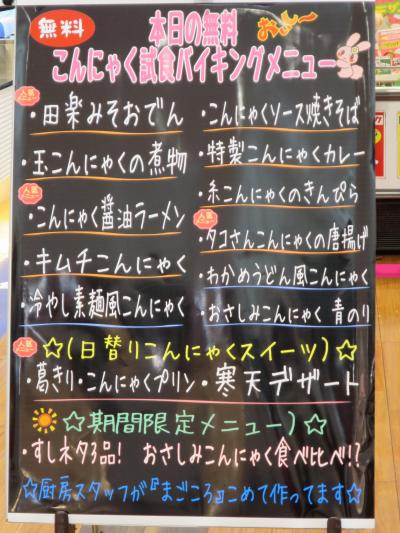 無料
本日の無料
おいし〜
こんにゃく試食バイキングメニュー
人気メニュー
・田楽みそおでん
・玉こんにゃくの煮物
人気メニュー
・こんにゃく醤油ラーメン
・キムチこんにゃく
・冷やし素麺風こんにゃく
・こんにゃくソース焼きそば
・特製こんにゃくカレー
・糸こんにゃくのきんぴら
人気メニュー
・タコさんこんにゃくの唐揚げ
・わかめうどん風こんにゃく
・おさしみこんにゃく 青のり
人気メニュー
☆(日替りこんにゃくスイーツ)☆
・葛きり・こんにゃくプリン・寒天デザート
☆期間限定メニュー)☆
・すしネタ3品! おさしみこんにゃく食べ比べ!?
☆厨房スタッフが『まごころ』こめて作ってます☆